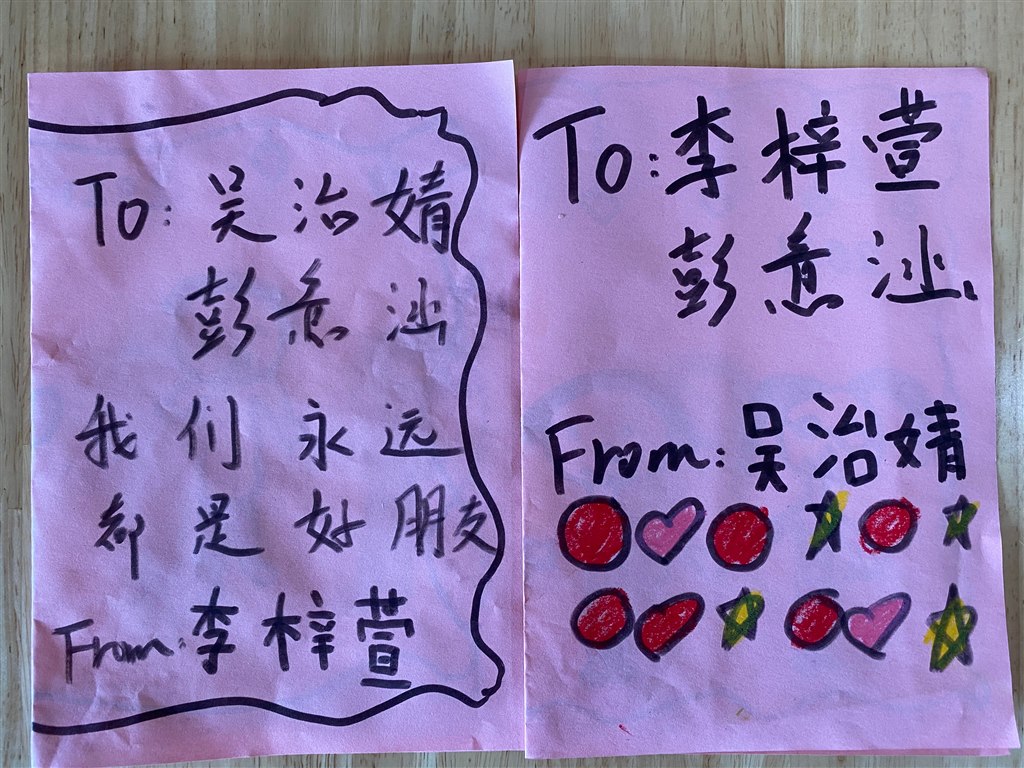 To: 吴治婧
彭意汕
我们永远
都是好朋友
From: 李梓萱
To: 李梓萱
彭意汕
From: 吴治婧